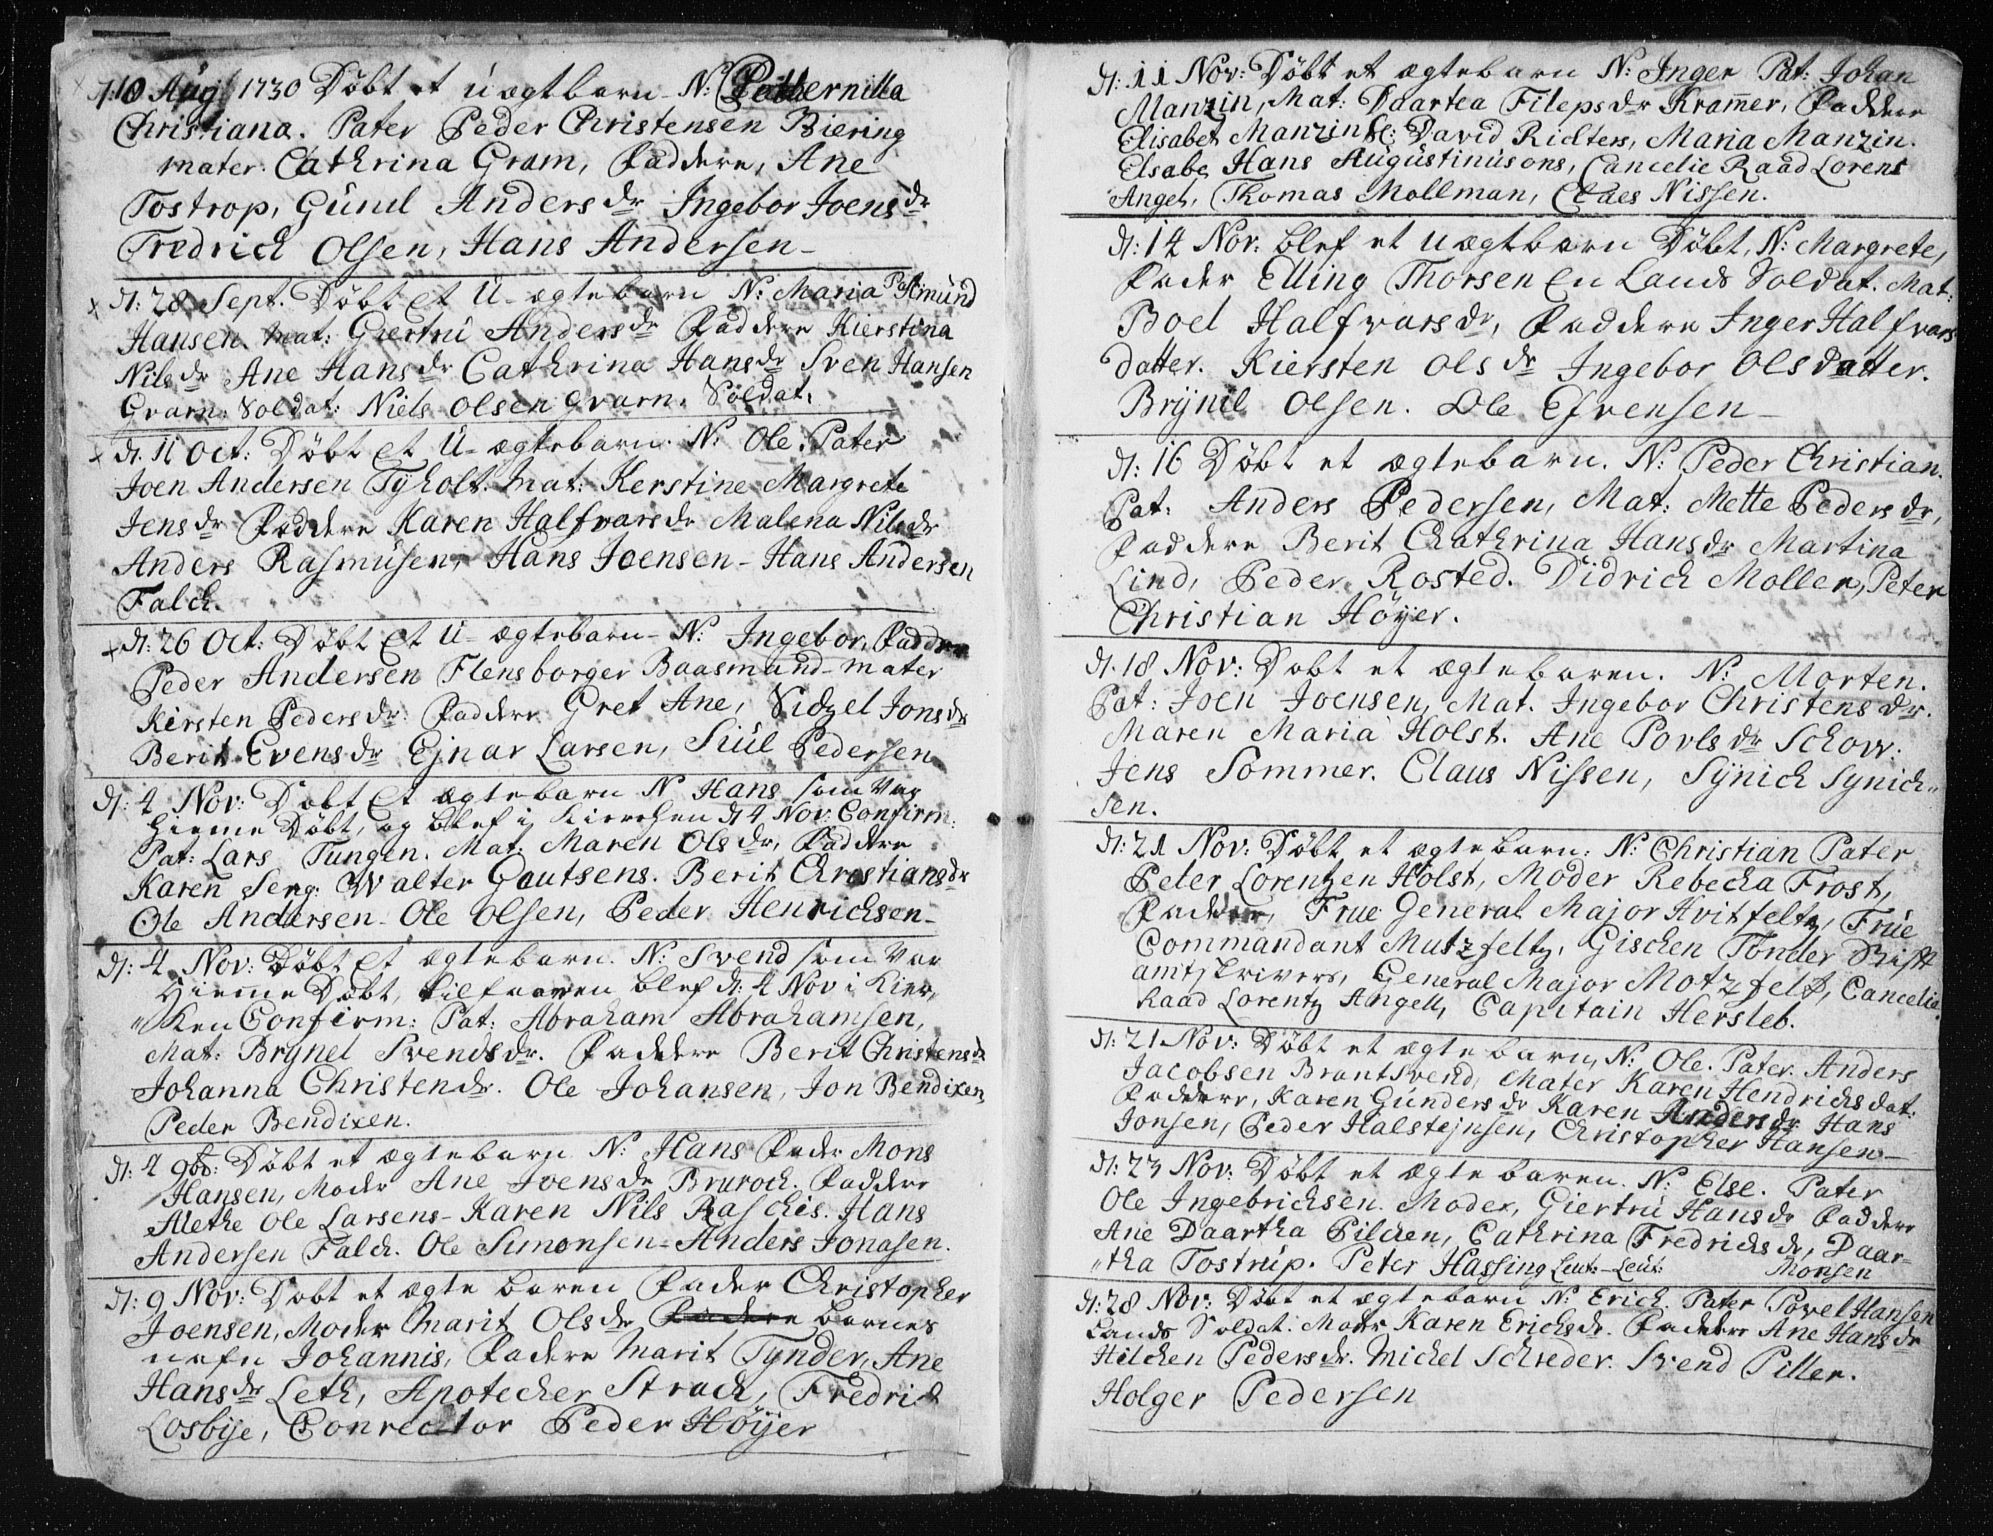 d: 10 Aug 1730 Døbt et uægtbarn N: Pethernilla
Christiana. Pater Peder Christensen Biering
mater. Cathrina Gram, Faddere, Ane
Tostrop, Gunil Anders dr Ingebor Joens dr
Fredrich Olsen, Hans Andersen
d: 28 Sept. Døbt et U-ægtebarn N: Maria Pat Amund
Hansen. mat: Giertru Anders dr Faddere Kierstina
Nils dr Ane Hans dr Cathrina Hans dr Sven Hansen
Gvarn: Soldat: Niels Olsen Gvarn. Soldat.
d: 11 Oct: Døbt et U-ægtebarn. N: Ole. Pater
Joen Andersen Tyholt. Mat: Kerstine Margrete
Jens dr Faddere Karen Halfvars dr Malena Nils dr
Anders Rasmusen, Hans Joensen - Hans Andersen
Falch.
d: 26 Oct: Døbt Et U-ægtebarn - N: Ingebor, Faddere
Peder Andersen Flensborger Baasmand - mater
Kirsten Peders dr: Faddere Gret Ane, Sidzel Jons dr
Berit Evens dr Ejnar Larsen, Siul Pedersen
d: 4 Nov: Døbt Et ægtebarn N Hans som var
hieme Døbt, og blef i Kierchen d 4 Nov: Confirm:
Pat: Lars Tungen. Mat: Maren Ols dr, Faddere
Karen Serg: Walter Goutsens. Berit Chrestians dr
Ole Andersen - Ole Olsen, Peder Henrichsen -
d: 4 Nov: Døbt Et ægtebarn. N: Svend som Var
Hieme Døbt, blef d: 4 Nov i Kier,
"ken Confirm: Pat: Abraham Abrahamsen,
Mat: Brynel Svends dr. Faddere Berit Christens dr
Johanna Christen dr. Ole Johansen, Jon Bendixen
Peder Bendixen.
d: 4 9br: Døbt et ægtebarn N: Hans Fader Mons
Hansen, Moder Ane Joens dr Bruroch. Faddere
Alethe Ole Larsens - Karen Nils Raschis. Hans
Andersen Falch. Ole Simonsen - Anders Jonasen.
d: 9 Nov: Døbt et ægte baren Fader Christopher
Joensen, Moder Marit Ols dr Fadere barnes
nafn Johannis, Fadere Marit Tynder, Ane
Hans dr Leth, Apotecher Strach, Fredrich
Losbye, Conrector Peder Høyer
d: 11 Nov: Døbt et ægtebarn N: Inger Pat: Johan
Manzin, Mat: Daartea Fileps dr Kramer, Faddere
Elisabet Manzin David Richters, Maria Manzin.
Elsabe Hans Augustinusons, Cancelie Raad Lorens
Angel, Thomas Mollman, Claes Nissen.
d: 14 Nov: blef et uægtbarn Døbt, N: Margrete,
Fader Elling Thorsen En Lands Soldat. Mat:
Boel Halfvars dr, Faddere Inger Halfvars
datter. Kiersten Ols dr Ingebor Olsdatter.
Brynil Olsen. Ole Efvensen -
d: 16 Døbt et ægtebarn. N: Peder Christian.
Pat: Anders Pedersen, Mat: Mette Peders dr,
Faddere Berit Chathrina Hans dr Martina
Lind, Peder Rosted. Didrich Moller, Peter
Christian Høyer.
d. 18 Nov: Døbt et ægtebaren. N: Morten.
Pat: Joen Joensen, Mat. Ingebor Christens dr.
Maren Maria Holst. Ane Povls dr Schow.
Jens Sommer. Claus Nissen, Synich Synich"
sen.
d: 21 Nov: Døbt et ægtebarn: N: Christian Pater
Peter Lorentzen Holst, Moder Rebecka Frost,
Faddere, Frue General Major Hvitfeltz, Frue
Commandant Mutzfeltz, Gischen Tønder Stift
amtskrivers, General Major Motzfeldt, Cancelie
Raad Lorentz Angell, Capitain Hersleb.
d: 21 Nov: Døbt et ægtebarn, N: Ole. Pater. Anders
Jacobsen Brantsvend, Mater Karen Hendrichsdat.
Faddere, Karen Gunders dr Karen Anders dr Hans
Jonsen, Peder Halstejnsen, Christopher Hansen -
d: 23 Nov: Døbt et ægte baren. N: Else. Pater
Ole Ingebrichsen. Moder, Giertru Hans dr Faddere
Ane Daartha Pilchen, Cathrina Fredrichs dr, Daar-
"tha Tostrup. Peter Hassing Leut: - Leut: Monsen
d: 28 Nov: Døbt et ægtebarn N: Erich. Pater Povel Hansen
Lands Soldat. Moder Karen Erichs dr. Faddere Ane Hans dr
Hilchen Peders dr. Michel Schreder. Svend Piller.
Holger Pedersen